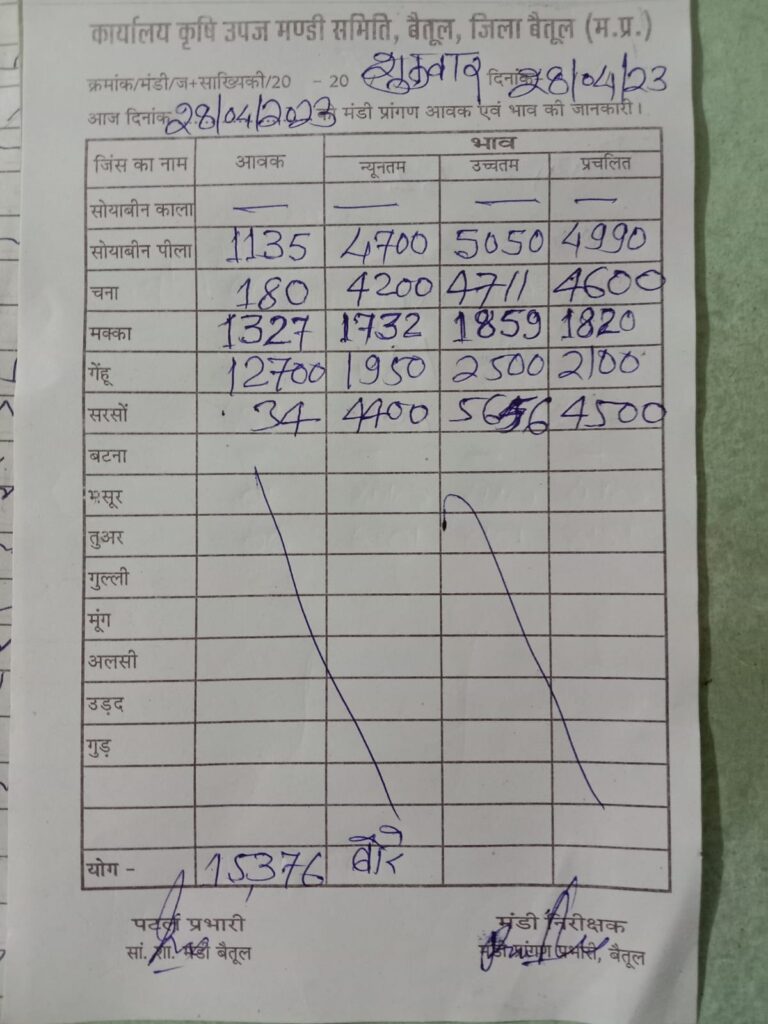 कार्यालय कृषि उपज मण्डी समिति, बैतूल, जिला बैतूल (म.प्र.)
क्रमांक/मंडी/ज+साख्यिकी/20 - 20 शुक्रवार दिनांक 28/04/23
आज दिनांक 28/04/2023 को मंडी प्रांगण आवक एवं भाव की जानकारी।
जिंस का नाम आवक भाव
न्यूनतम उच्चतम प्रचलित
सोयाबीन काला — — — —
सोयाबीन पीला 1135 4700 5050 4990
चना 180 4200 4711 4600
मक्का 1327 1732 1859 1820
गेंहू 12700 1950 2500 2100
सरसों 34 4400 5656 4500
बटना
मसूर
तुअर
गुल्ली
मूंग
अलसी
उड़द
गुड़
योग - 15,376 बोरे
प्रभारी मंडी निरीक्षक
सां. शा. मंडी बैतूल मंडी प्रांगण प्रभारी, बैतूल